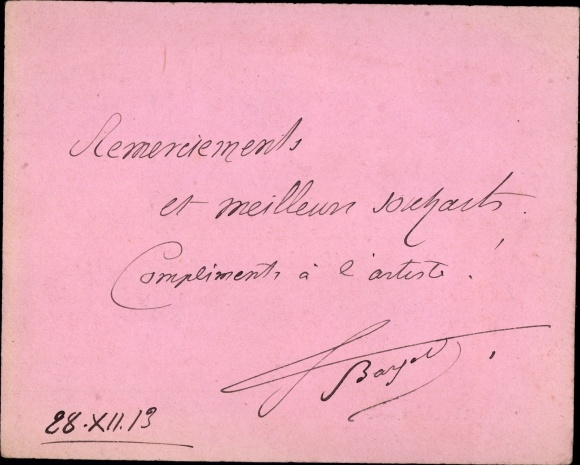 Remerciements
et meilleurs souhaits.
Compliments à l'artiste !
28.XII.13